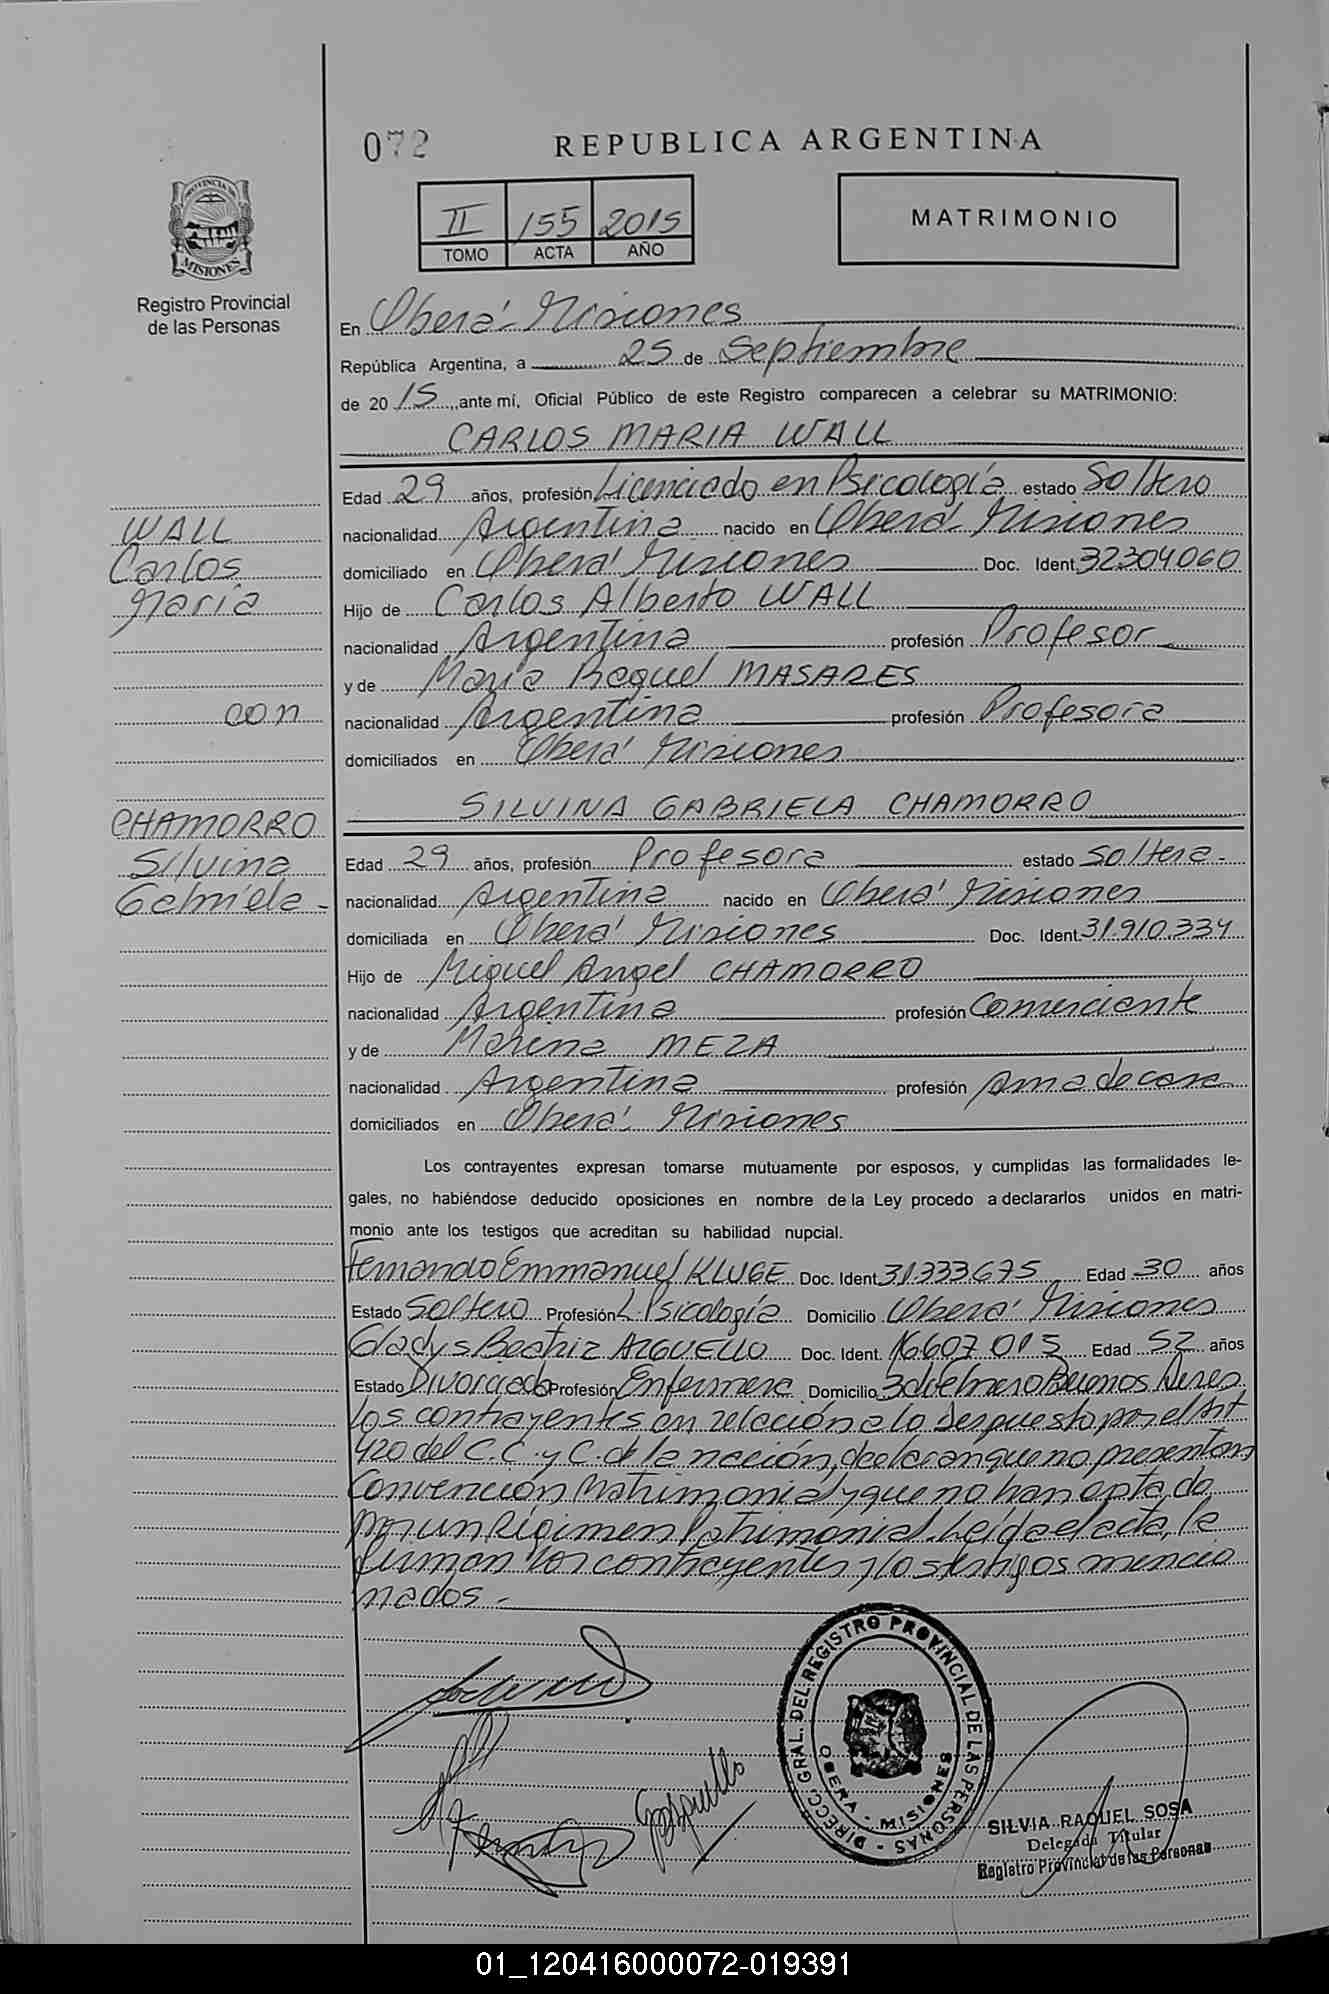 072
REPUBLICA ARGENTINA
II 155 2015
TOMO ACTA AÑO
MATRIMONIO
PROVINCIA DE
MISIONES
Registro Provincial
de las Personas
En Oberá - Misiones
República Argentina, a 25 de Septiembre
de 20 15, ante mí, Oficial Público de este Registro comparecen a celebrar su MATRIMONIO:
CARLOS MARIA WALL
Edad 29 años, profesión Licenciado en Psicología estado Soltero
nacionalidad Argentina nacido en Oberá - Misiones
domiciliado en Oberá Misiones Doc. Ident 32304060
Hijo de Carlos Alberto WALL
nacionalidad Argentina profesión Profesor
y de María Raquel MASARES
nacionalidad Argentina profesión Profesora
domiciliados en Oberá Misiones
WALL
Carlos
María
con
CHAMORRO
Silvina
Gabriela -
SILVINA GABRIELA CHAMORRO
Edad 29 años, profesión Profesora estado Soltera -
nacionalidad Argentina nacido en Oberá Misiones
domiciliada en Oberá Misiones Doc. Ident 31.910.334
Hijo de Miguel Angel CHAMORRO
nacionalidad Argentina profesión Comerciante
y de Marina MEZA
nacionalidad Argentina profesión Ama de casa
domiciliados en Oberá Misiones
Los contrayentes expresan tomarse mutuamente por esposos, y cumplidas las formalidades le-
gales, no habiéndose deducido oposiciones en nombre de la Ley procedo a declararlos unidos en matri-
monio ante los testigos que acreditan su habilidad nupcial.
Fernando Emmanuel KLUGE Doc. Ident 31.333.675 Edad 30 años
Estado Soltero Profesión L. Psicología Domicilio Oberá Misiones
Gladys Beatriz ARGUELLO Doc. Ident. 16.607.013 Edad 52 años
Estado Divorciada Profesión Enfermera Domicilio 3 de Febrero Buenos Aires
Los contrayentes en relación a lo despuesto por el Art
420 del C.C. y C. de la nación, declaran que no presentan
Convención Matrimonial y que no han optado
por un Régimen Patrimonial. Leída el acta, la
firman los contrayentes y los testigos mencio
nados -
DIRECC. GRAL. DEL REGISTRO PROVINCIAL DE LAS PERSONAS
OBERA - MISIONES
SILVIA RAQUEL SOSA
Delegada Titular
Registro Provincial de las Personas
01_120416000072-019391